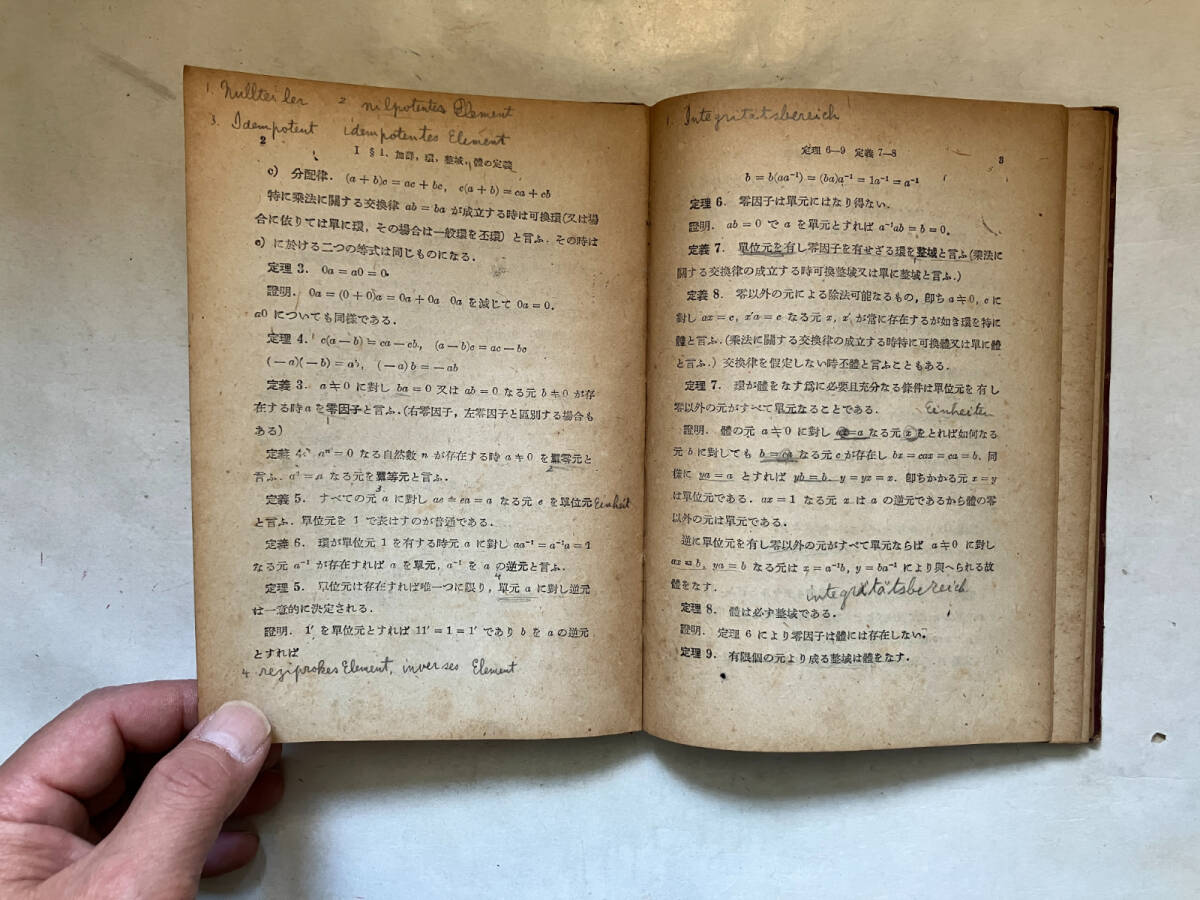 1. Nullteiler 2. nilpotentes Element
3. Idempotent idempotentes Element
2 I §1. 加群，環，整域，體の定義
c) 分配律． (a+b)c=ac+bc, c(a+b)=ca+cb
特に乘法に關する交換律 ab=ba が成立する時は可換環(又は場
合に依りては單に環，その場合は一般環を丕環)と言ふ．その時は
c) に於ける二つの等式は同じものになる．
定理 3． 0a=a0=0.
證明． 0a=(0+0)a=0a+0a 0a を減じて 0a=0.
a0 についても同樣である．
定理 4． c(a-b)=ca-cb, (a-b)c=ac-bc
(-a)(-b)=ab, (-a)b=-ab
定義 3． a≠0 に對し ba=0 又は ab=0 なる元 b≠0 が存
在する時 a を零因子と言ふ．(右零因子，左零因子と區別する場合も
ある)
定義 4． aⁿ=0 なる自然數 n が存在する時 a≠0 を冪零元と
言ふ． a²=a なる元を冪等元と言ふ．
定義 5． すべての元 a に對し ae=ea=a なる元 e を單位元 Einheit
と言ふ．單位元を 1 で表はすのが普通である．
定義 6． 環が單位元 1 を有する時元 a に對し aa⁻¹=a⁻¹a=1
なる元 a⁻¹ が存在すれば a を單元， a⁻¹ を a の逆元と言ふ．
定理 5． 單位元は存在すれば唯一つに限り，單元 a に對し逆元
は一意的に決定される．
證明． 1′ を單位元とすれば 11′=1=1′ であり b を a の逆元
とすれば
4. reziprokes Element, inverses Element
1. Integritätsbereich
定理 6—9 定義 7—8 3
b=b(aa⁻¹)=(ba)a⁻¹=1a⁻¹=a⁻¹
定理 6． 零因子は單元にはなり得ない．
證明． ab=0 で a を單元とすれば a⁻¹ab=b=0.
定義 7． 單位元を有し零因子を有せざる環を整域と言ふ(乘法に
關する交換律の成立する時可換整域又は單に整域と言ふ．)
定義 8． 零以外の元による除法可能なるもの，卽ち a≠0, c に
對し ax=c, x′a=c なる元 x, x′ が常に存在するが如き環を特に
體と言ふ．(乘法に關する交換律の成立する時特に可換體又は單に體
と言ふ．) 交換律を假定しない時丕體と言ふこともある．
定理 7． 環が體をなす爲に必要且充分なる條件は單位元を有し
零以外の元がすべて單元なることである． Einheiten
證明． 體の元 a≠0 に對し ax=a なる元 x をとれば如何なる
元 b に對しても b=ca なる元 c が存在し bx=cax=ca=b. 同
樣に ya=a とすれば yb=b. y=yx=x. 卽ちかかる元 x=y
は單位元である． ax=1 なる元 x は a の逆元であるから體の零
以外の元は單元である．
逆に單位元を有し零以外の元がすべて單元ならば a≠0 に對し
ax=b, ya=b なる元は x=a⁻¹b, y=ba⁻¹ により與へられる故
體をなす． integritätsbereich
定理 8． 體は必ず整域である．
證明． 定理 6 により零因子は體には存在しない．
定理 9． 有限個の元より成る整域は體をなす．